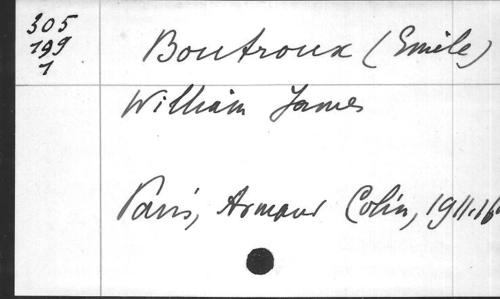 305
199
1
Boutroux (Emile)
William James
Paris, Armand Colin, 1911. 16